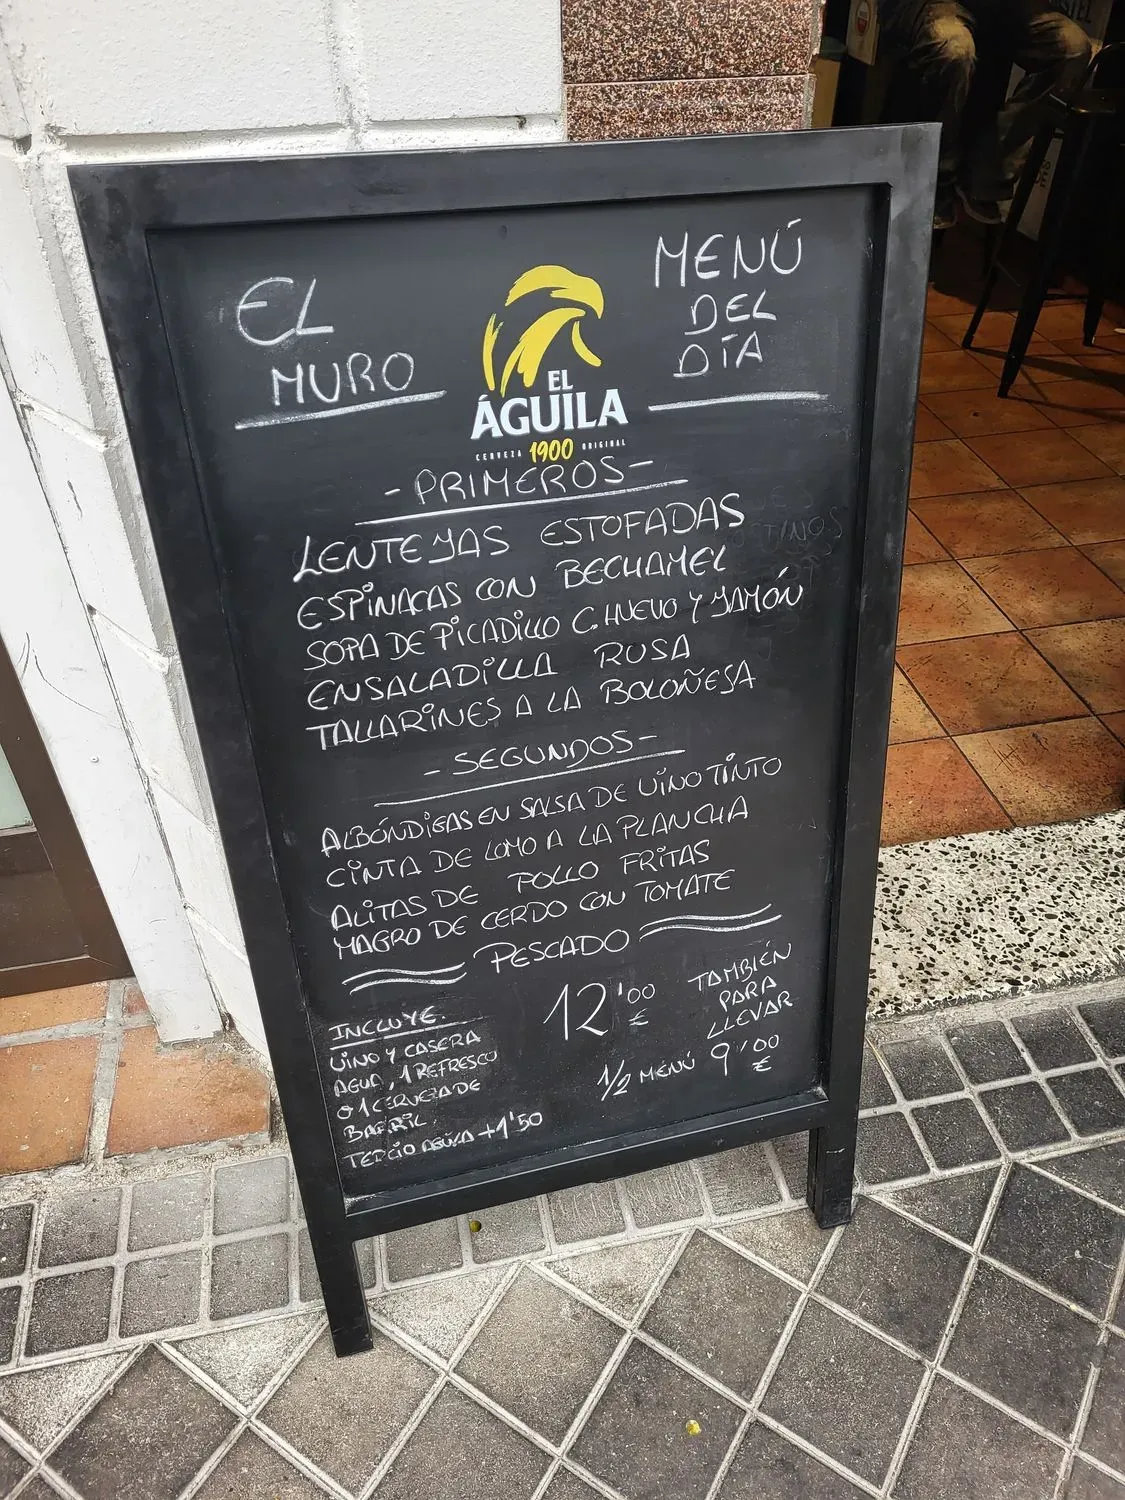 EL
MURO
MENÚ
DEL
DÍA
EL
ÁGUILA
CERVEZA 1900 ORIGINAL
- PRIMEROS -
LENTEJAS ESTOFADAS
ESPINACAS CON BECHAMEL
SOPA DE PICADILLO C. HUEVO Y JAMÓN
ENSALADILLA RUSA
TALLARINES A LA BOLOÑESA
- SEGUNDOS -
ALBÓNDIGAS EN SALSA DE VINO TINTO
CINTA DE LOMO A LA PLANCHA
ALITAS DE POLLO FRITAS
MAGRO DE CERDO CON TOMATE
PESCADO
INCLUYE.
VINO Y CASERA
AGUA, 1 REFRESCO
O 1 CERVEZA DE
BARRIL,
TERCIO AGUILA +1'50
12'00
€
TAMBIÉN
PARA
LLEVAR
1/2 MENÚ 9'00
€